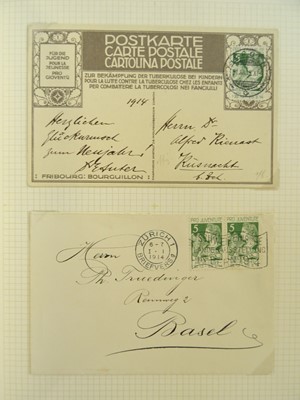 POSTKARTE
CARTE POSTALE
CARTOLINA POSTALE
FÜR DIE
JUGEND
POUR LA
JEUNESSE
PRO
GIOVENTÙ
ZUR BEKÄMPFUNG DER TUBERKULOSE BEI KINDERN
POUR LA LUTTE CONTRE LA TUBERCULOSE CHEZ LES ENFANTS
PER COMBATTERE LA TUBERCOLOSI NEI FANCIULLI
5
1914
Herzlichen
Glückwunsch
zum Neujahr!
Herrn Dr
Alfred
Küsnacht
FRIBOURG: BOURGUILLON
PRO JUVENTUTE PRO JUVENTUTE
5 5
ZÜRICH 1
1914
BRIEFVERS.
Herrn
Ph.
Rennweg 2
Basel